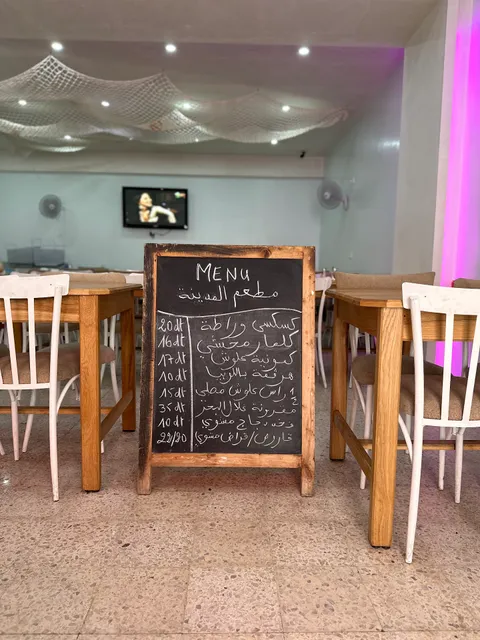 MENU
مطعم المدينة
20dt كسكسي وراطة
16dt كلمار محشي
17dt كبونة علوش
10dt مرقة باللوبيا
15dt ½ راس علوش مصلي
35dt مقرونة غلال البحر
10dt دجاج مشوي
22/30 قاروص/قراض مشوي